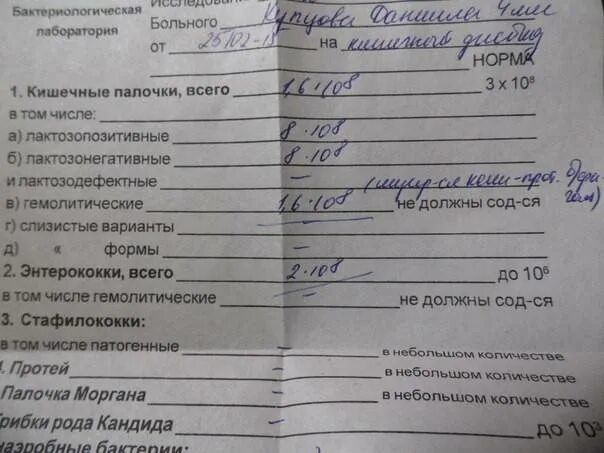 Исследован
Бактериологическая
лаборатория
Больного Купцова Даниила 4 мес
от 25/02-15 на кишечный дисбид
НОРМА
1. Кишечные палочки, всего 1,6·10⁸ 3 х 10⁸
в том числе:
а) лактозопозитивные 8·10⁸
б) лактозонегативные 8·10⁸
и лактозодефектные –
в) гемолитические 1,6·10⁸ не должны сод-ся
г) слизистые варианты
д) « формы –
2. Энтерококки, всего 2·10⁸ до 10⁶
в том числе гемолитические – не должны сод-ся
3. Стафилококки:
в том числе патогенные – в небольшом количестве
4. Протей – в небольшом количестве
Палочка Моргана – в небольшом количестве
Грибки рода Кандида – до 10³
анаэробные бактерии: